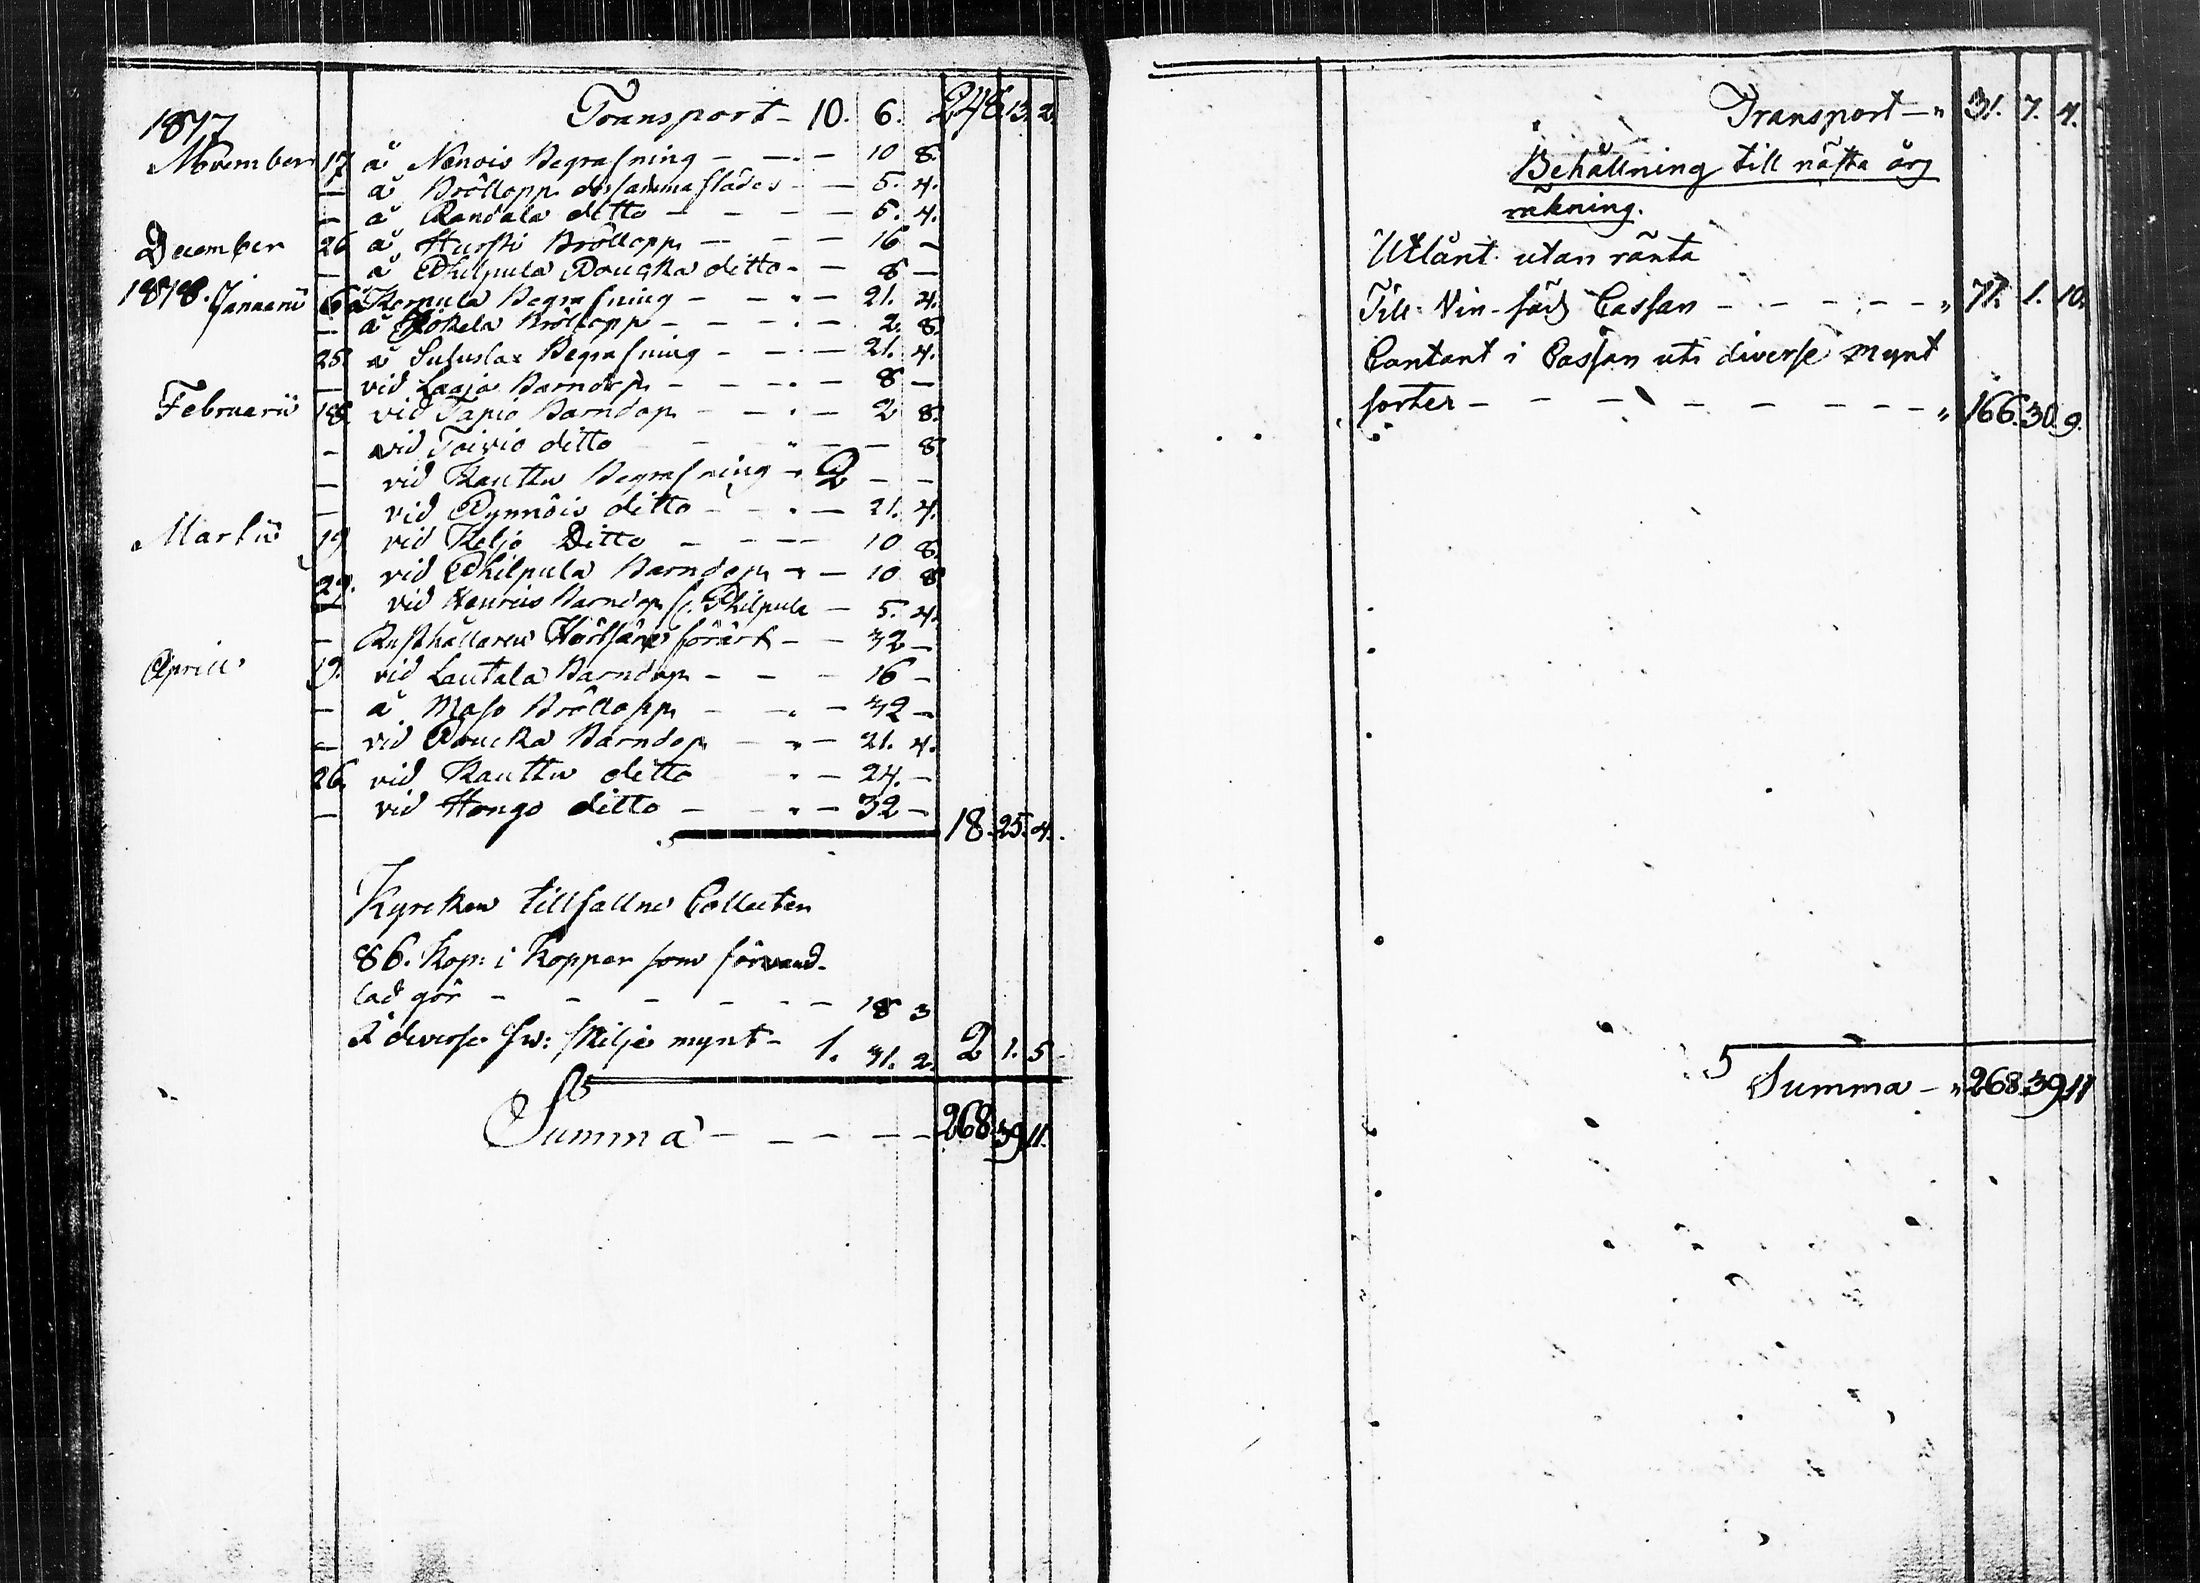 Transport - 10. 6. 248. 13. 2.
1817
November 17 å Nenois Begrafning - - - 10 8.
- å Bröllopp dersammastädes - - 5. 4.
- å Randala ditto - - - - 5. 4.
December 26 å Hurski Bröllopp - - - 16 -
- å Philpula Poucka ditto - - 8 -
1818. Januarii 6 å Kornula Begrafning - - - 21. 4.
- å Bröllopp - - - - 2. 8.
25 å Begrafning - - - 21. 4.
- vid Laaja Barndop - - - - 8 -
Februarii 18. vid Tapio Barndop - - - 2 8.
- vid Toivio ditto - - - - 8.
- vid Kauttu Begrafning - 2 - -
- vid Pynnöis ditto - - - 21. 4.
Martii 19 vid Keljo Ditto - - - - 10 8.
29. vid Philpula Barndop - - 10 8
- vid Henrics Barndop f. Philpula - 5. 4.
- Rusthållaren förärt - - 32 -
Aprill 19. vid Lautala Barndop - - - 16 -
- å Maso Bröllopp - - - 32 -
- vid Poucka Barndop - - - 21. 4.
26. vid Kauttu ditto - - 24. -
- vid Hongo ditto - - - 32 -
18. 25. 4.
Kyrckan tillfallne Collecten
86. Kop: i Kopper som förvand-
lad gör - - - - - - 18 3
I diverse Sw: skilje mynt - 1. 31. 2. 2 1. 5
Summa - - - - - 268. 39 11.
Transport - " 31. 7. 4.
Behållning till nästa års
räkning.
Utlånt utan ränta
Till Vin-säds Cassan - - - - - " 71. 1. 10.
Contant i Cassan uti diverse mynt
sorter - - - - - - - - " 166. 30. 9.
Summa - " 268. 39. 11